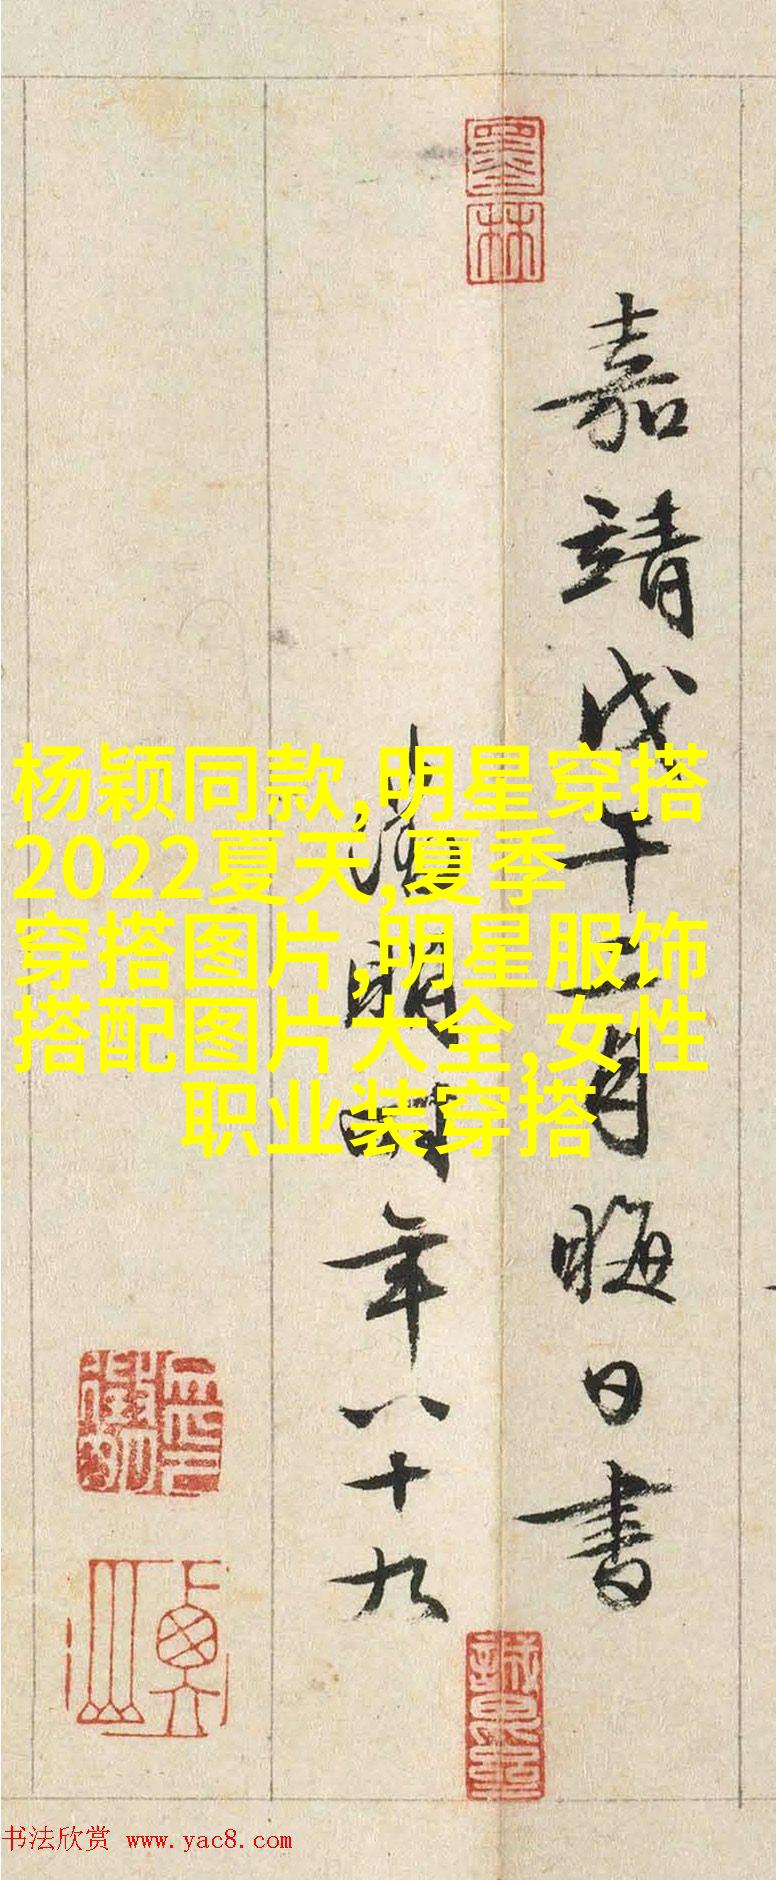 墨林
嘉靖戊午月晦日書
徵明時年八十九
衡山
杨颖同款,明星穿搭
2022夏天,夏季
穿搭图片,明星服饰
搭配图片大全,女性
职业装穿搭
书法欣赏 www.yac8.com